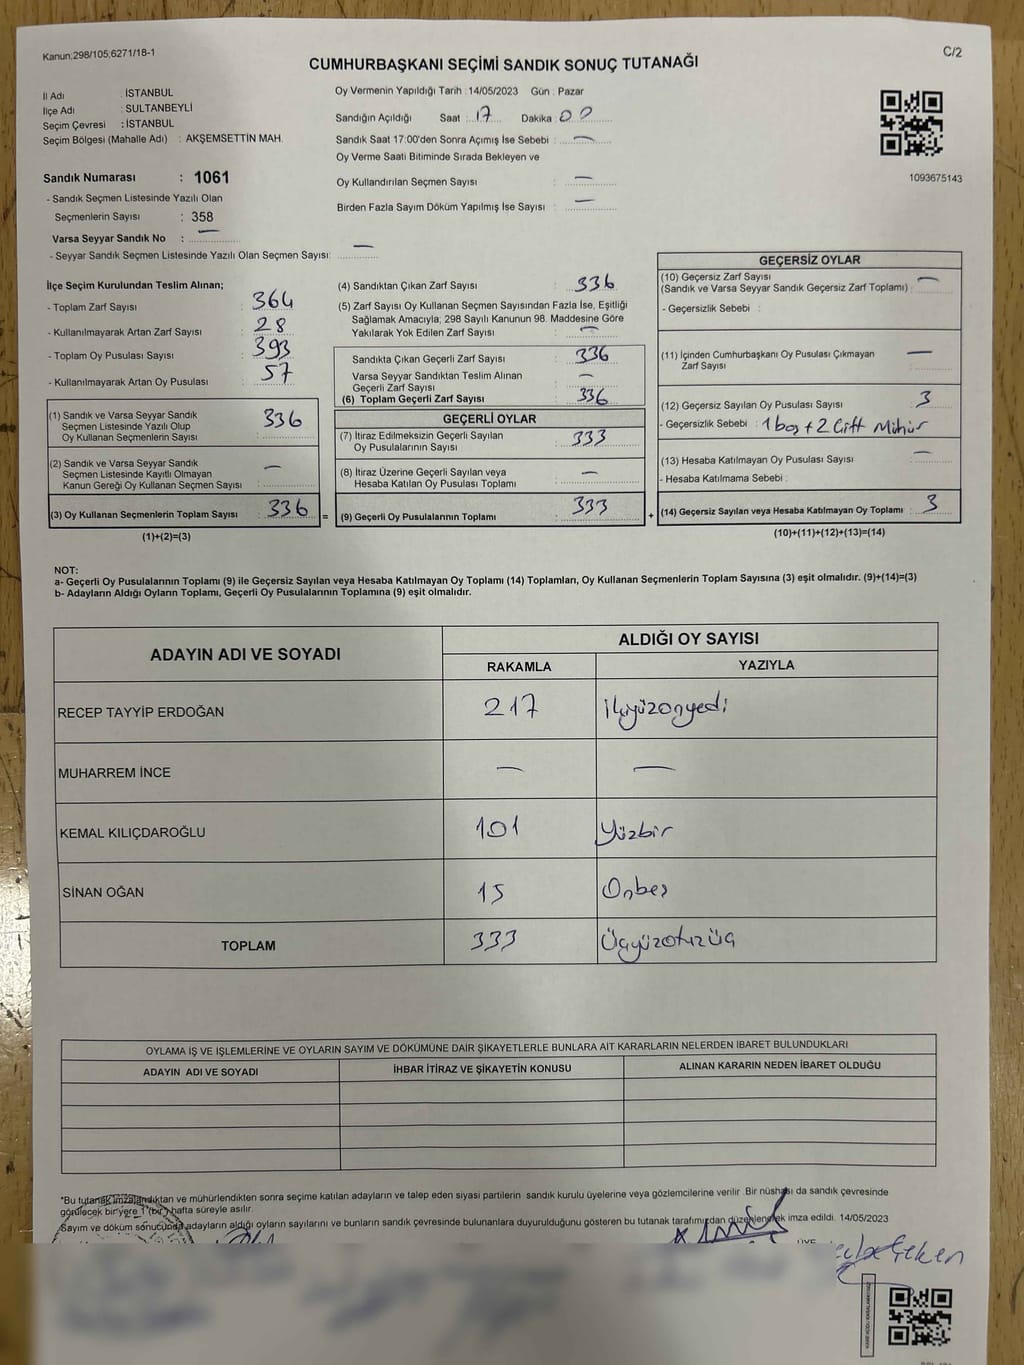 Kanun;298/105;6271/18-1
C/2
CUMHURBAŞKANI SEÇİMİ SANDIK SONUÇ TUTANAĞI
İl Adı : İSTANBUL
İlçe Adı : SULTANBEYLİ
Seçim Çevresi : İSTANBUL
Seçim Bölgesi (Mahalle Adı) : AKŞEMSETTİN MAH.
Sandık Numarası : 1061
- Sandık Seçmen Listesinde Yazılı Olan
Seçmenlerin Sayısı : 358
Varsa Seyyar Sandık No : —
- Seyyar Sandık Seçmen Listesinde Yazılı Olan Seçmen Sayısı: —
Oy Vermenin Yapıldığı Tarih : 14/05/2023 Gün : Pazar
Sandığın Açıldığı Saat : 17 Dakika : 00
Sandık Saat 17:00'den Sonra Açımış İse Sebebi : —
Oy Verme Saati Bitiminde Sırada Bekleyen ve
Oy Kullandırılan Seçmen Sayısı : —
Birden Fazla Sayım Döküm Yapılmış İse Sayısı : —
1093675143
İlçe Seçim Kurulundan Teslim Alınan;
- Toplam Zarf Sayısı : 364
- Kullanılmayarak Artan Zarf Sayısı : 28
- Toplam Oy Pusulası Sayısı : 393
- Kullanılmayarak Artan Oy Pusulası : 57
(1) Sandık ve Varsa Seyyar Sandık
Seçmen Listesinde Yazılı Olup
Oy Kullanan Seçmenlerin Sayısı : 336
(2) Sandık ve Varsa Seyyar Sandık
Seçmen Listesinde Kayıtlı Olmayan
Kanun Gereği Oy Kullanan Seçmen Sayısı : —
(3) Oy Kullanan Seçmenlerin Toplam Sayısı : 336 =
(1)+(2)=(3)
(4) Sandıktan Çıkan Zarf Sayısı : 336
(5) Zarf Sayısı Oy Kullanan Seçmen Sayısından Fazla İse, Eşitliği
Sağlamak Amacıyla, 298 Sayılı Kanunun 98. Maddesine Göre
Yakılarak Yok Edilen Zarf Sayısı : —
Sandıkta Çıkan Geçerli Zarf Sayısı : 336
Varsa Seyyar Sandıktan Teslim Alınan
Geçerli Zarf Sayısı : —
(6) Toplam Geçerli Zarf Sayısı : 336
GEÇERLİ OYLAR
(7) İtiraz Edilmeksizin Geçerli Sayılan
Oy Pusulalarının Sayısı : 333
(8) İtiraz Üzerine Geçerli Sayılan veya
Hesaba Katılan Oy Pusulası Toplamı : —
(9) Geçerli Oy Pusulalarının Toplamı : 333 +
GEÇERSİZ OYLAR
(10) Geçersiz Zarf Sayısı
(Sandık ve Varsa Seyyar Sandık Geçersiz Zarf Toplamı) : —
- Geçersizlik Sebebi :
(11) İçinden Cumhurbaşkanı Oy Pusulası Çıkmayan
Zarf Sayısı : —
(12) Geçersiz Sayılan Oy Pusulası Sayısı : 3
- Geçersizlik Sebebi : 1 boş + 2 Çift Mühür
(13) Hesaba Katılmayan Oy Pusulası Sayısı : —
- Hesaba Katılmama Sebebi :
(14) Geçersiz Sayılan veya Hesaba Katılmayan Oy Toplamı : 3
(10)+(11)+(12)+(13)=(14)
NOT:
a- Geçerli Oy Pusulalarının Toplamı (9) ile Geçersiz Sayılan veya Hesaba Katılmayan Oy Toplamı (14) Toplamları, Oy Kullanan Seçmenlerin Toplam Sayısına (3) eşit olmalıdır. (9)+(14)=(3)
b- Adayların Aldığı Oyların Toplamı, Geçerli Oy Pusulalarının Toplamına (9) eşit olmalıdır.
ADAYIN ADI VE SOYADI
ALDIĞI OY SAYISI
RAKAMLA YAZIYLA
RECEP TAYYİP ERDOĞAN 217 ikiyüzonyedi
MUHARREM İNCE — —
KEMAL KILIÇDAROĞLU 101 Yüzbir
SİNAN OĞAN 15 Onbeş
TOPLAM 333 Üçyüzotuzüç
OYLAMA İŞ VE İŞLEMLERİNE VE OYLARIN SAYIM VE DÖKÜMÜNE DAİR ŞİKAYETLERLE BUNLARA AİT KARARLARIN NELERDEN İBARET BULUNDUKLARI
ADAYIN ADI VE SOYADI İHBAR İTİRAZ VE ŞİKAYETİN KONUSU ALINAN KARARIN NEDEN İBARET OLDUĞU
*Bu tutanak imzalandıktan ve mühürlendikten sonra seçime katılan adayların ve talep eden siyasi partilerin sandık kurulu üyelerine veya gözlemcilerine verilir. Bir nüshası da sandık çevresinde
görülecek bir yere 1 (bir) hafta süreyle asılır.
Sayım ve döküm sonucunda adayların aldığı oyların sayılarını ve bunların sandık çevresinde bulunanlara duyurulduğunu gösteren bu tutanak tarafımızdan düzenlenerek imza edildi. 14/05/2023
ÜYE